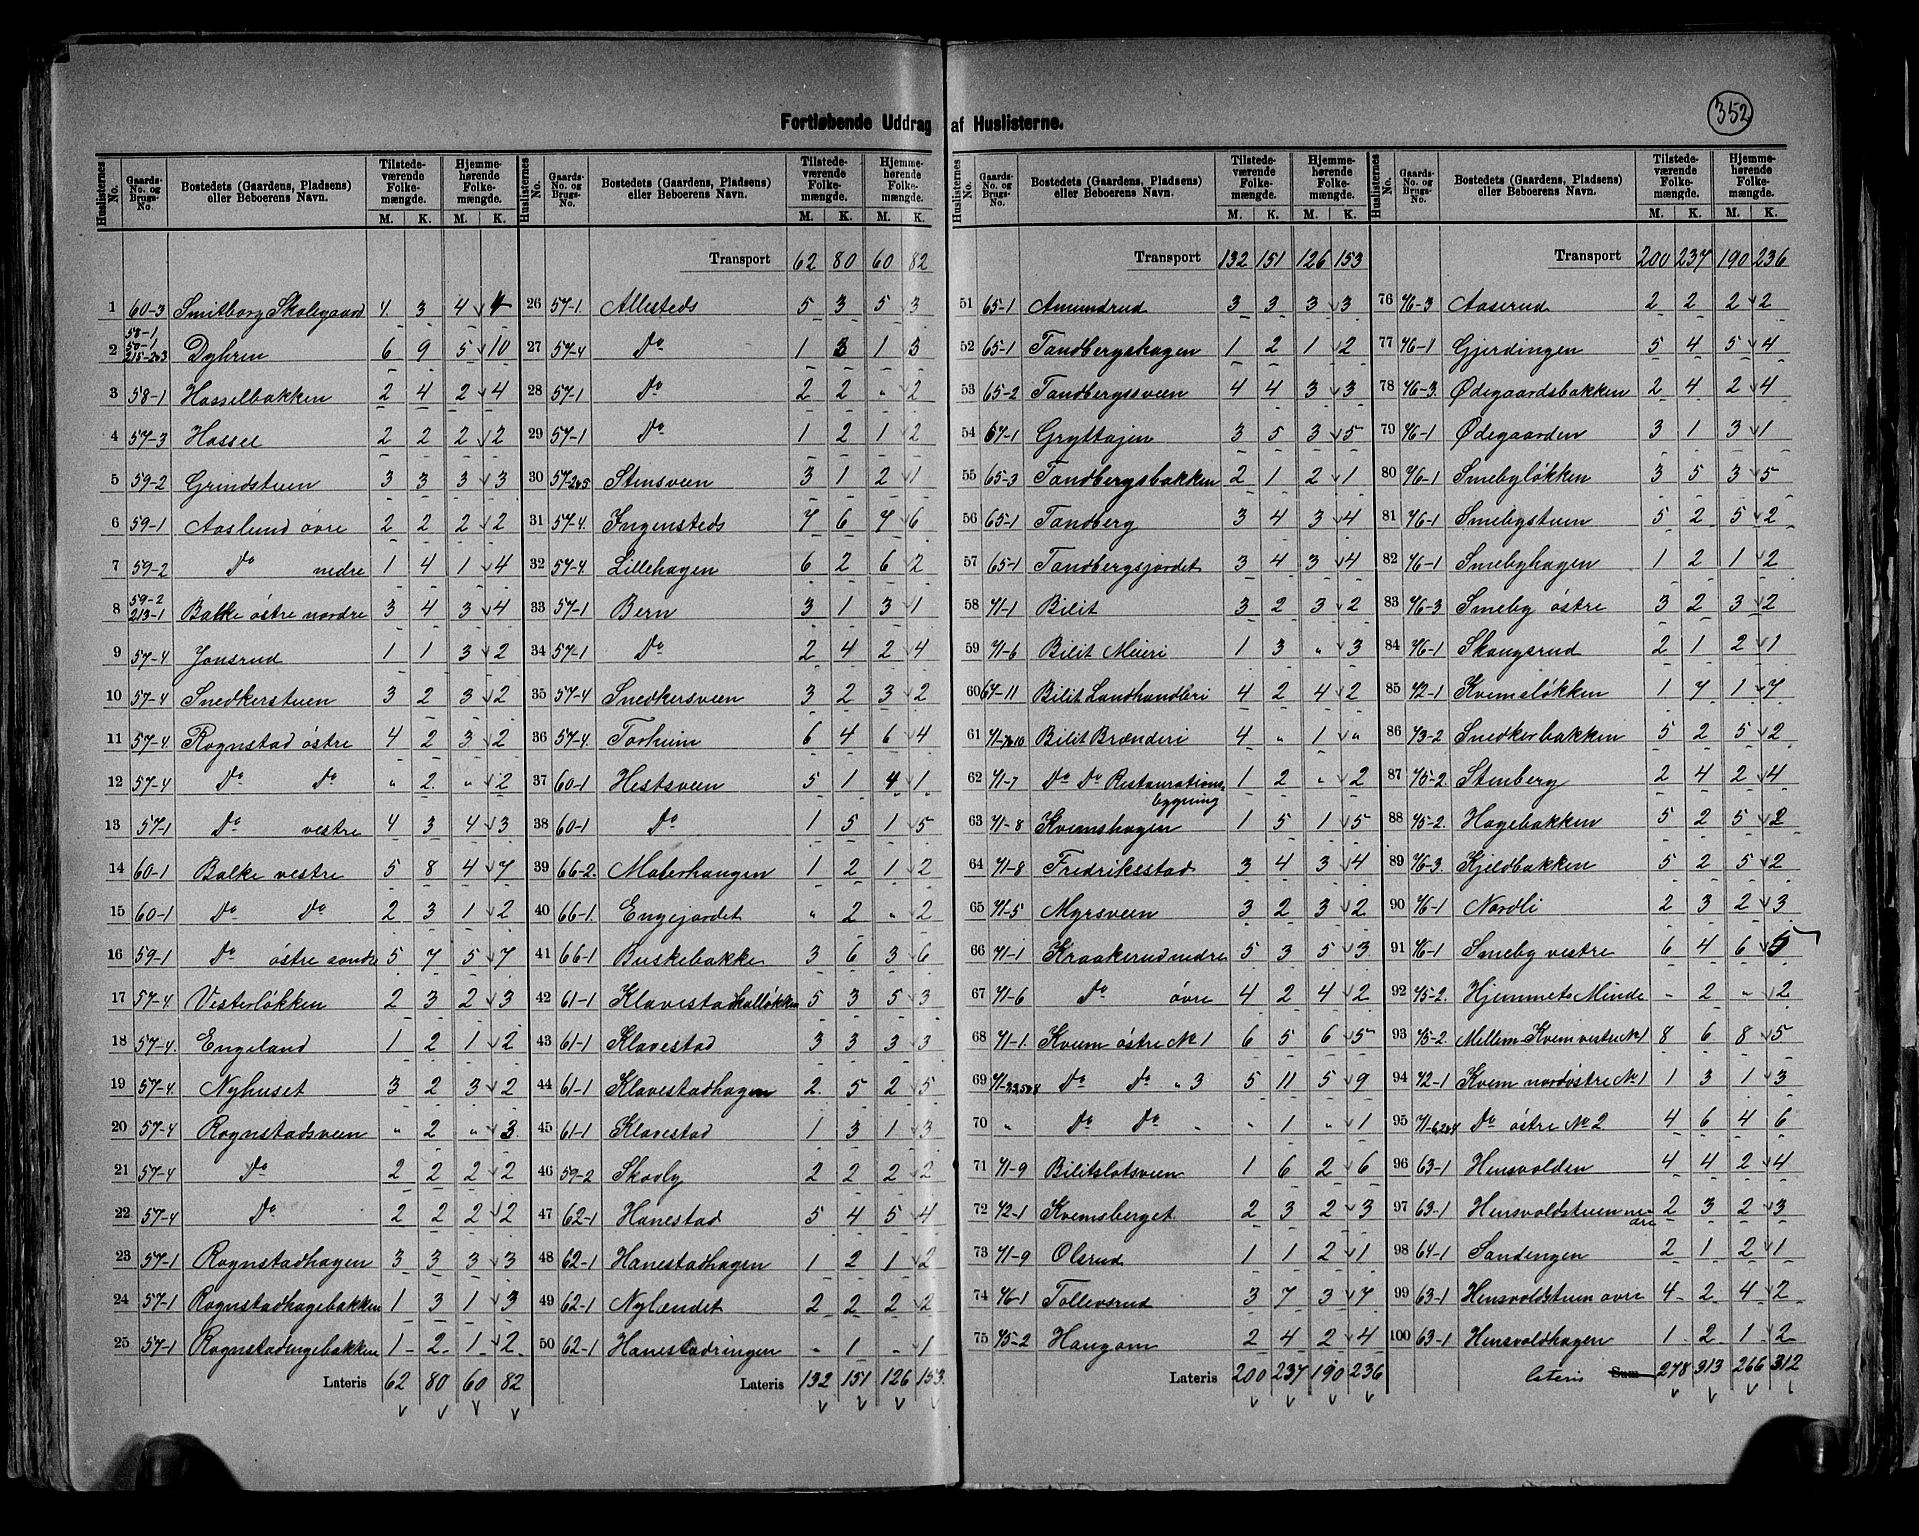 352
Fortløbende Uddrag af Huslisterne.
Huslisternes No. | Gaards-No. og Brugs-No. | Bostedets (Gaardens, Pladsens) eller Beboerens Navn. | Tilstedeværende Folkemængde. M. K. | Hjemmehørende Folkemængde. M. K.
1 60-3 Smitborg Skolegaard 4 3 4 4
2 58-1, 50-1 215-2,3 Dyhren 6 9 5 10
3 58-1 Hasselbakken 2 4 2 4
4 57-3 Hassel 2 2 2 2
5 59-2 Grindstuen 3 3 3 3
6 59-1 Aaslund øvre 2 2 2 2
7 59-2 Do nedre 1 4 1 4
8 59-2 213-1 Balke østre nordre 3 4 3 4
9 57-4 Jonsrud 1 1 3 2
10 57-4 Snedkerstuen 3 2 3 2
11 57-4 Rognstad østre 4 2 3 2
12 57-4 Do Do " 2 " 2
13 57-1 Do vestre 4 3 4 3
14 60-1 Balke vestre 5 8 4 7
15 60-1 Do Do 2 3 1 2
16 59-1 Do østre søndre 5 7 5 7
17 57-4 Vesterløkken 2 3 2 3
18 57-4. Engeland 1 2 1 2
19 57-4. Nyhuset 3 2 3 2
20 57-4 Rognstadsveen " 2 " 3
21 57-4 Do 2 2 2 2
22 57-4 Do 2 2 2 2
23 57-1 Rognstadhagen 3 3 3 3
24 57-1 Rognstadhagebakken 1 3 1 3
25 57-1 Rognstadengebakken 1 2 1 2
Lateris 62 80 60 82
Huslisternes No. | Gaards-No. og Brugs-No. | Bostedets (Gaardens, Pladsens) eller Beboerens Navn. | Tilstedeværende Folkemængde. M. K. | Hjemmehørende Folkemængde. M. K.
Transport 62 80 60 82
26 57-1. Allesteds 5 3 5 3
27 57-4 Do 1 3 1 3
28 57-1 Do 2 2 " 2
29 57-1 Do 1 2 1 2
30 57-2&5 Stensveen 3 1 2 1
31 57-4. Ingensteds 7 6 7 6
32 57-4. Lillehagen 6 2 6 2
33 57-1 Bern 3 1 3 1
34 57-1 Do 2 4 2 4
35 57-4 Snedkersveen 3 2 3 2
36 57-4. Torheim 6 4 6 4
37 60-1 Hestsveen 5 1 4 1
38 60-1 Do 1 5 1 5
39 66-2. Malerhaugen 1 2 1 2
40 66-1. Engejordet " 2 " 2
41 66-1 Buskebakke 3 6 3 6
42 61-1 Klavestadkalløkken 5 3 5 3
43 61-1 Klavestad 3 3 3 3
44 61-1 Klavestadhagen 2. 5 2 5
45 61-1 Klavestad 1 3 1 3
46 59-2 Skovly 2 2 2 2
47 62-1 Hanestad 5 4 5 4
48 62-1 Hanestadhagen 1 2 1 2
49 62-1 Nylændet 2 2 2 2
50 62-1 Hanestadringen " 1 " 1
Lateris 132 151 126 153.
Huslisternes No. | Gaards-No. og Brugs-No. | Bostedets (Gaardens, Pladsens) eller Beboerens Navn. | Tilstedeværende Folkemængde. M. K. | Hjemmehørende Folkemængde. M. K.
Transport 132 151 126 153
51 65-1 Amundrud 3 3 3 3
52 65-1 Tandbergshagen 1 2 1 2
53 65-2 Tandbergssveen 4 4 3 3
54 67-1 Gryttajen 3 5 3 5
55 65-3 Tandbergsbakken 2 1 2 1
56 65-1 Tandberg 3 4 3 4
57 65-1 Tandbergsjordet 3 4 3 4
58 71-1 Bilit 3 2 3 2
59 71-6 Bilit Meieri 1 3 " 3
60 67-11 Bilit Landhandleri 4 2 4 2
61 71-7&10 Bilit Brænderi 4 " 1 "
62 71-7 Do Do Restaurationsbygning 1 2 " 2
63 71-8 Kvemshagen 1 5 1 5
64 71-8 Fredriksstad 3 4 3 4
65 71-5 Myrsveen 3 2 3 2
66 71-1 Kraakerud nedre 5 3 5 3
67 71-6 Do øvre 4 2 4 2
68 71-1. Kvem østre No 1 6 5 6 5
69 71-3,3,5&8 Do Do " 3 5 11 5 9
70 " Do Do " " 1 " 1
71 71-9 Bilitslotsveen 1 6 2 6
72 72-1 Kvemsberget 2 3 2 3
73 71-9 Olsrud 1 1 2 1
74 76-1 Tollevsrud 3 7 3 7
75 75-2 Haugom 2 4 2 4
Lateris 200 237 190 236
Huslisternes No. | Gaards-No. og Brugs-No. | Bostedets (Gaardens, Pladsens) eller Beboerens Navn. | Tilstedeværende Folkemængde. M. K. | Hjemmehørende Folkemængde. M. K.
Transport 200 237 190 236
76 76-3 Aaserud 2 2 2 2
77 76-1 Gjerdingen 5 4 5 4
78 76-3. Ødegaardsbakken 2 4 2 4
79 76-1 Ødegaarden 3 1 3 1
80 76-1 Smebyløkken 3 5 3 5
81 76-1 Smebystuen 5 2 5 2
82 76-1 Smebyhagen 1 2 1 2
83 76-3 Smeby østre 3 2 3 2
84 76-1 Skaugsrud 2 1 2 1
85 72-1 Kvemsløkken 1 7 1 7
86 73-2 Snedkerbakken 5 2 5 2
87 75-2. Stenberg 2 4 2 4
88 75-2. Hagebakken 5 2 5 2
89 76-3. Kjeldbakken 5 2 5 2
90 76-1 Nordli 2 3 2 3
91 76-1 Smeby vestre 6 4 6 5
92 75-2. Hjemmets Minde " 2 " 2
93 75-2. Mellem-Kvem vestre No 1 8 6 8 5
94 72-1 Kvem nordøstre No 1 1 3 1 3
95 71-6,2&4 Do østre No 2 4 6 4 6
96 63-1 Hensvolden 4 4 2 4
97 63-1 Hensvoldstuen nedre 2 3 2 3
98 64-1 Sandengen 2 1 2 1
99 63-1 Hensvoldstuen øvre 4 2 4 2
100 63-1 Hensvoldhagen 1 2 1 2
Lateris Sum 278 313 266 312